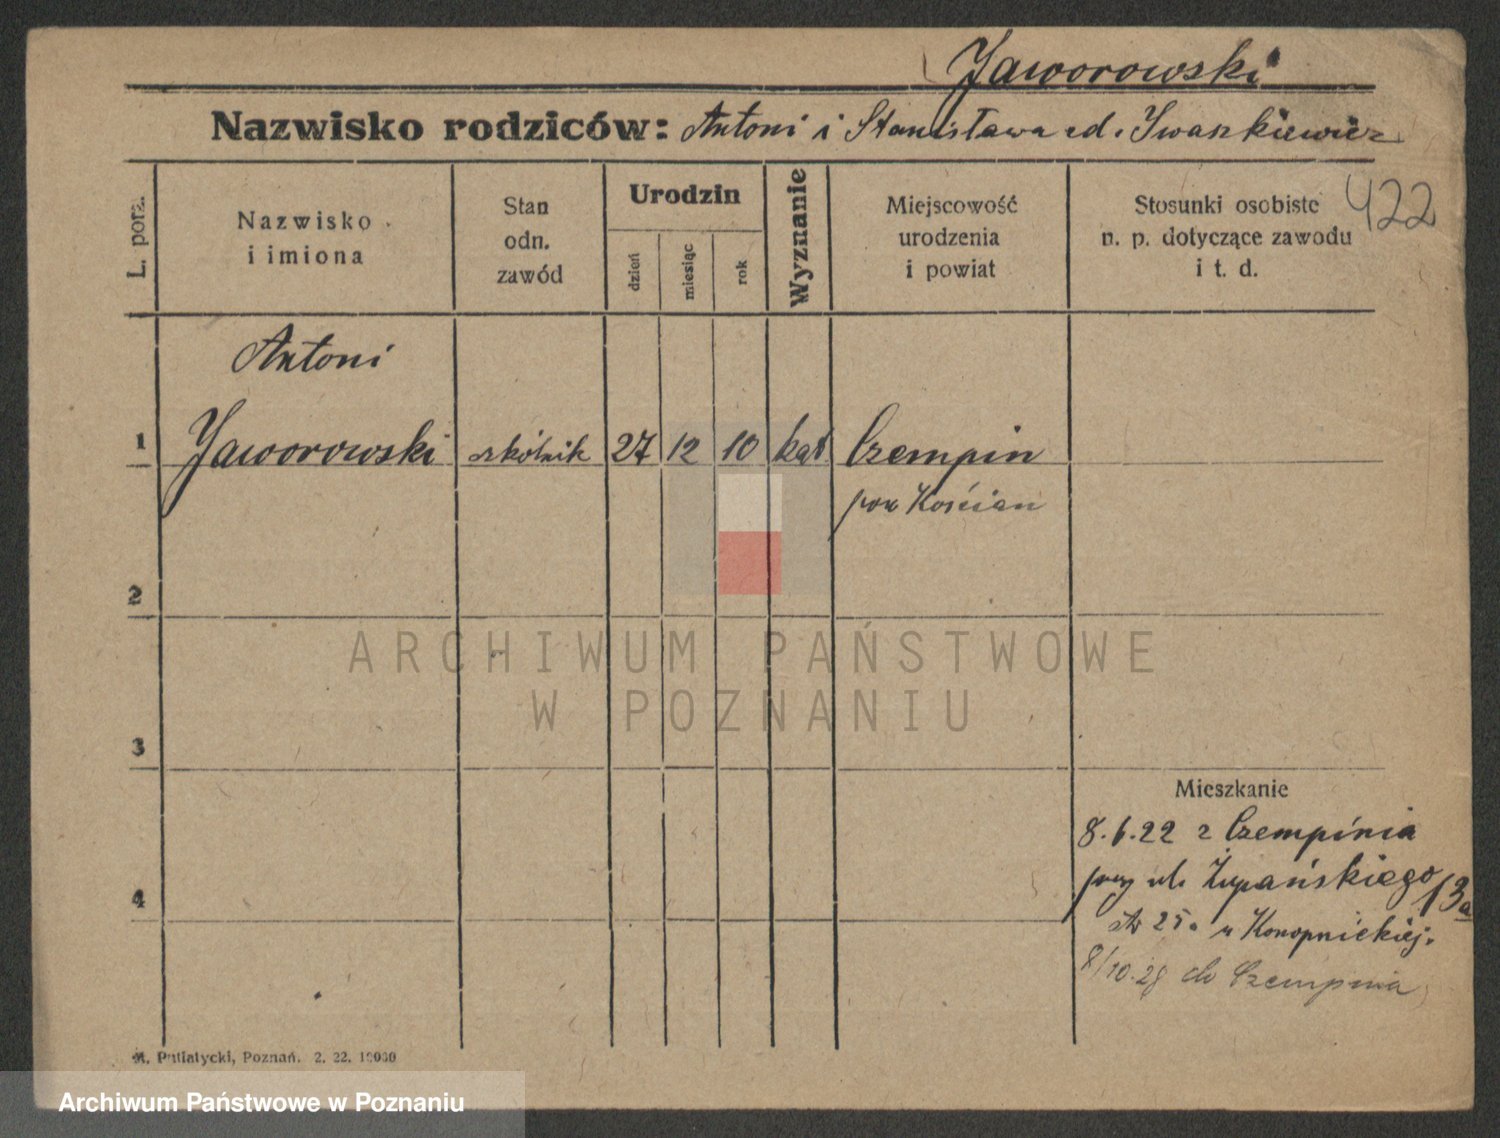 Jaworowski
Nazwisko rodziców: Antoni i Stanisława zd. Iwaszkiewicz
422
L. porz.
Nazwisko
i imiona
Stan
odn.
zawód
Urodzin
dzień
miesiąc
rok
Wyznanie
Miejscowość
urodzenia
i powiat
Stosunki osobiste
n. p. dotyczące zawodu
i t. d.
Antoni
1 Jaworowski szkólnik 27 12 10 kat Czempin
pow Kościan
2
3
4
Mieszkanie
8.6.22 z Czempinia
przy ul. Żupańskiego 13a
25. u Konopnickiej.
8/10.28 do Czempinia
M. Putiatycki, Poznań. 2. 22. 10000
ARCHIWUM PAŃSTWOWE
W POZNANIU
Archiwum Państwowe w Poznaniu